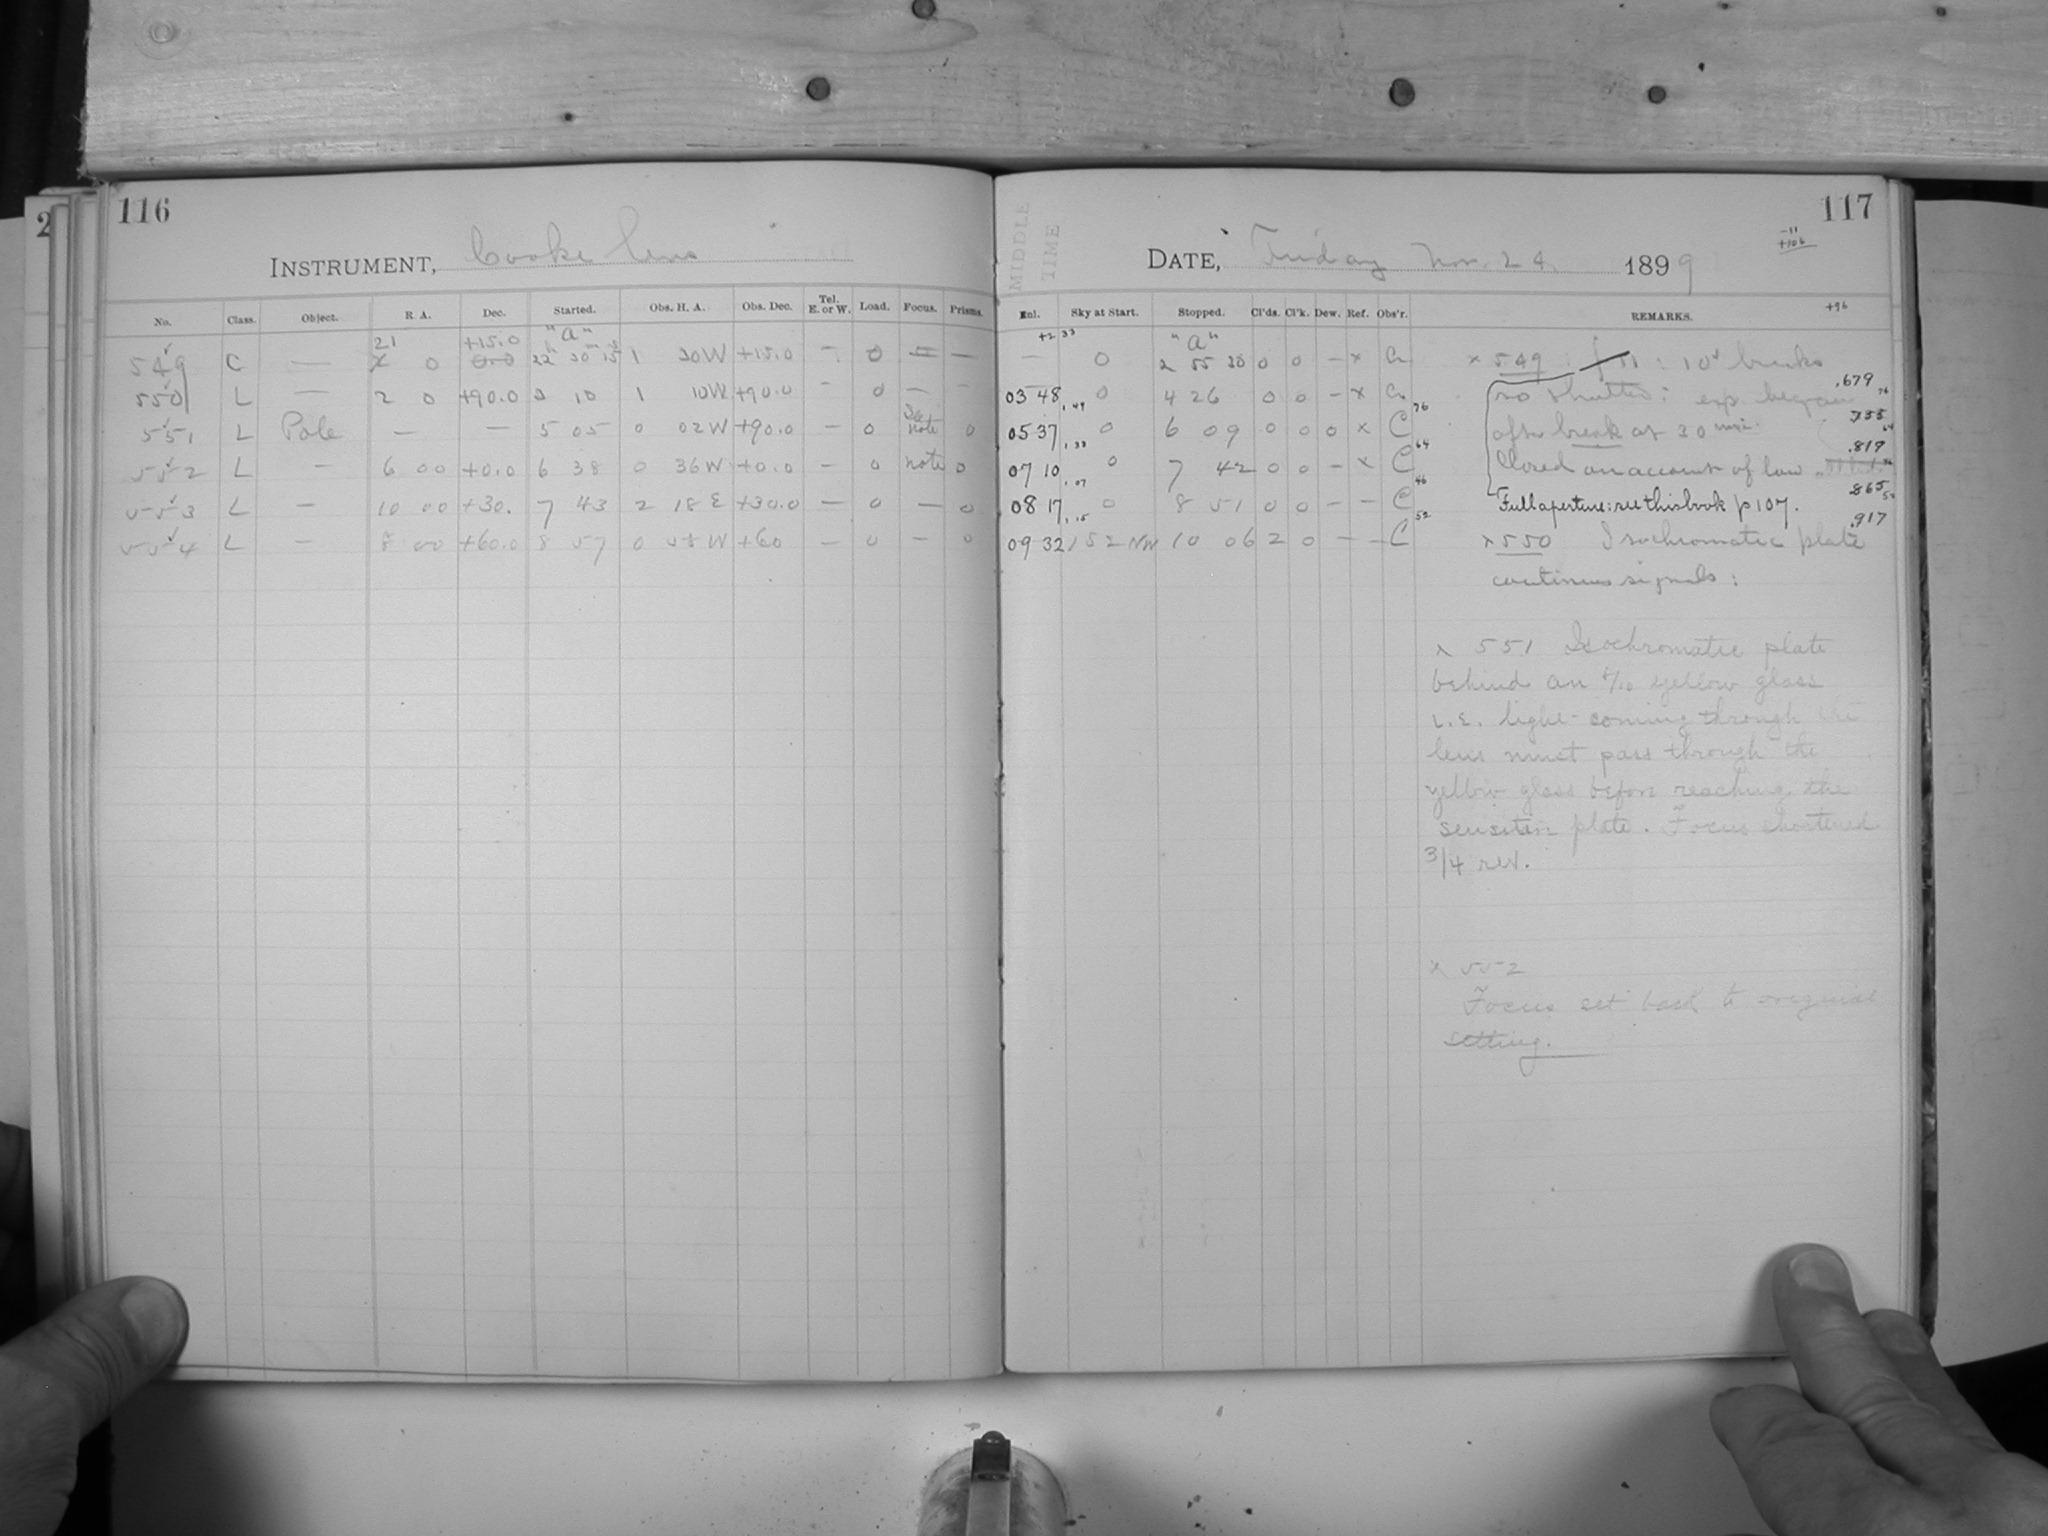 116
INSTRUMENT, Cooke lens
No. Class. Object. R. A. Dec. Started. Obs. H. A. Obs. Dec. Tel. E. or W. Load. Focus. Prisms.
21 +15.0 "a"
549 C — X 0 0.0 22 30 15 1 30W +15.0 - 0 = —
550 L — 2 0 +90.0 3 10 1 10W +90.0 - 0 — -
551 L Pole — — 5 05 0 02W +90.0 — 0 See note 0
552 L - 6 00 +0.0 6 38 0 36W +0.0 — 0 note 0
553 L — 10 00 +30. 7 43 2 18 E +30.0 — 0 — 0
554 L — 8 00 +60.0 8 57 0 58 W +60 — 0 - 0
2
MIDDLE
TIME
117
DATE, Friday Nov. 24. 1899
-11
+106
Enl. Sky at Start. Stopped. Cl'ds. Cl'k. Dew. Ref. Obs'r. REMARKS.
+96
+2 33 "a"
— 0 2 55 30 0 0 - x Cr.
03 48 .49 0 4 26 0 0 - x Cr.
05 37 .33 0 6 09 0 0 0 x C 76
07 10 .07 0 7 42 0 0 - x C 64
08 17 .15 0 8 51 0 0 - - C 46
09 32 152 NW 10 06 2 0 - - C 52
x 549 : f 11 : 10 breaks
no shutter; exp. began .679
after break at 30 min. .755
Closed on account of low .819
Full aperture: see this book p 107. .865
.917
x 550 Isochromatic plate
continuous signals:
x 551 Isochromatic plate
behind an 8/10 yellow glass
i.e. light coming through the
lens must pass through the
yellow glass before reaching the
sensitive plate. Focus shortened
3/4 rev.
x 552
Focus set back to original
setting.